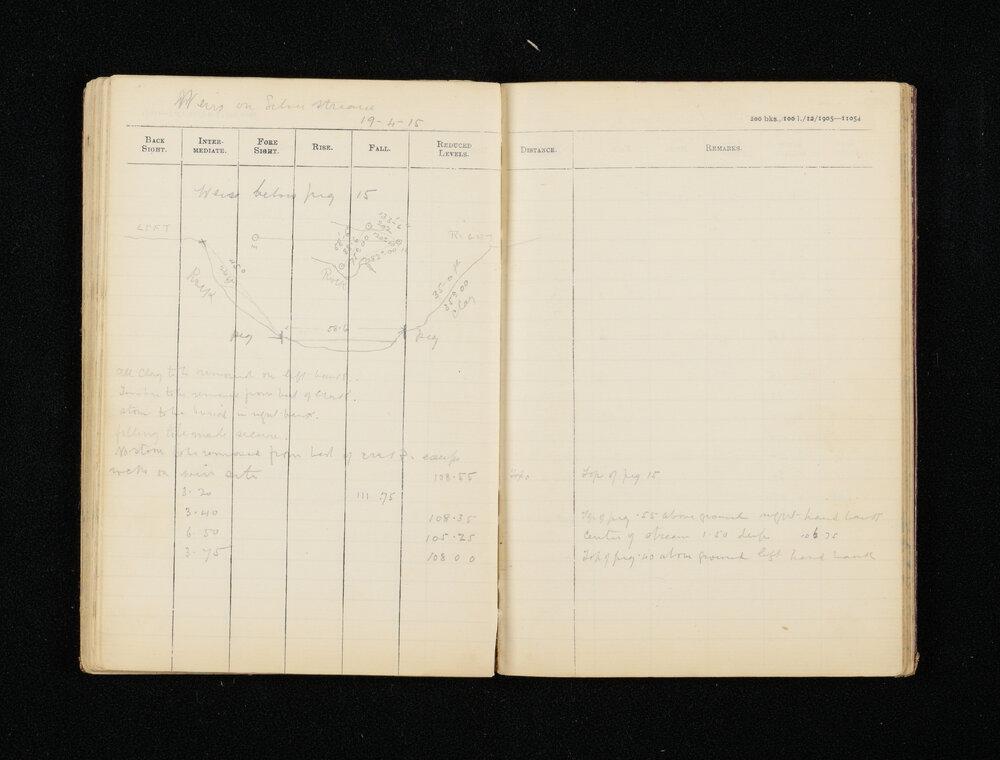 Weirs on Silver stream
19-4-15
100 bks., 100 l./12/1905—11054
BACK SIGHT. INTER-MEDIATE. FORE SIGHT. RISE. FALL. REDUCED LEVELS. DISTANCE. REMARKS.
Weir below peg 15
LEFT
RIGHT
Rock
Rock
35.0
Clay
peg
58.6
peg
All Clay to be removed on left bank.
to be removed from bed of
stone to be buried in right bank.
filling to be made secure.
No stone to be removed from bed of except
rocks on weir site
108.55 Top of peg 15
3.20 111.75
3.40 108.35 Top of peg .55 above ground right hand bank
6.50 105.25 Center of stream 1.50 deep
3.75 108 00 Top of peg .40 above ground left hand bank